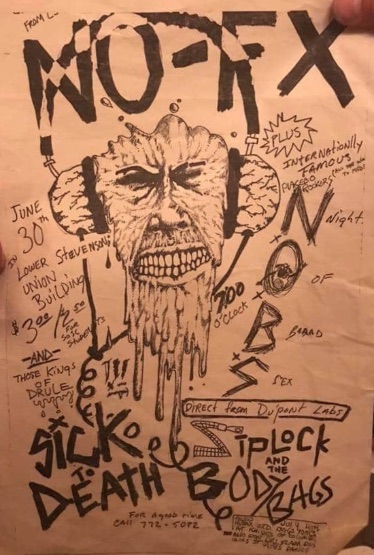 FROM L.
NO-FX
PLUS
INTERNATIONLLY
FAMOUS
PLACEBO
ROCKERS
JUNE
30TH
IN
LOWER STEVENSON
UNION
BUILDING
$3.00/2.00
FOR
SOSC
STUDENTS
-AND-
THOSE KINGS
OF
DRULE
NIGHT
OF
BOARD
SEX
N.O.B.S
7:00
O'CLOCK
!!!
DIRECT FROM DUPONT LABS
SICK
TO
DEATH
ZIPLOCK
AND
THE
BODY
BAGS
FOR A GOOD TIME
CALL 772-5092